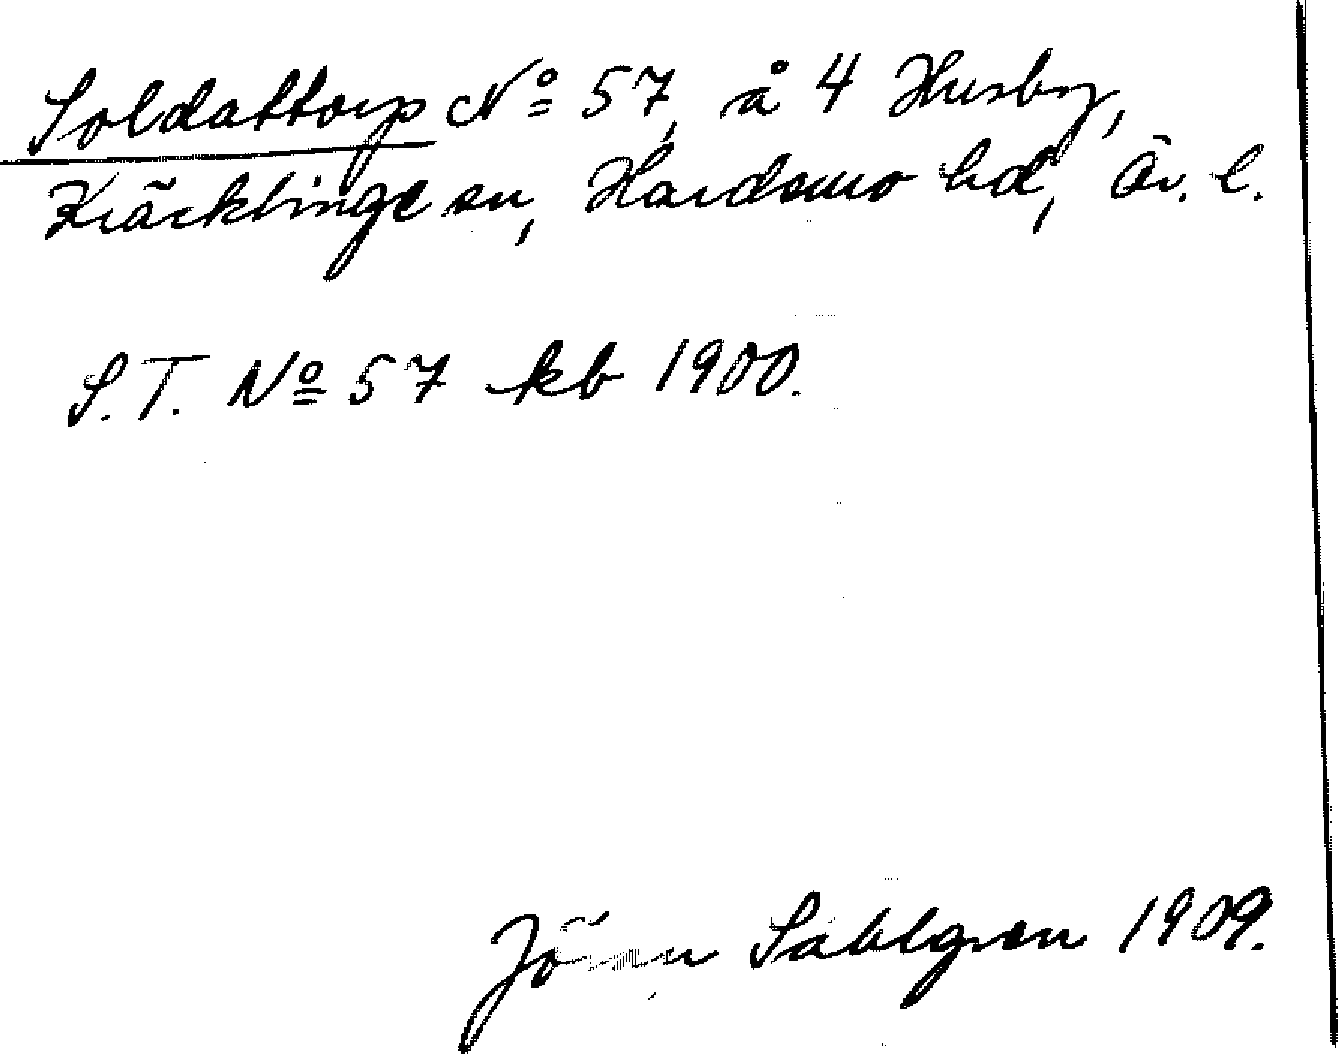 Soldattorp No 57, å 4 Husby,
Kräcklinge sn, Hardemo hd, Ör. l.
S.T. No 57 kb 1900.
Jöran Sahlgren 1909.